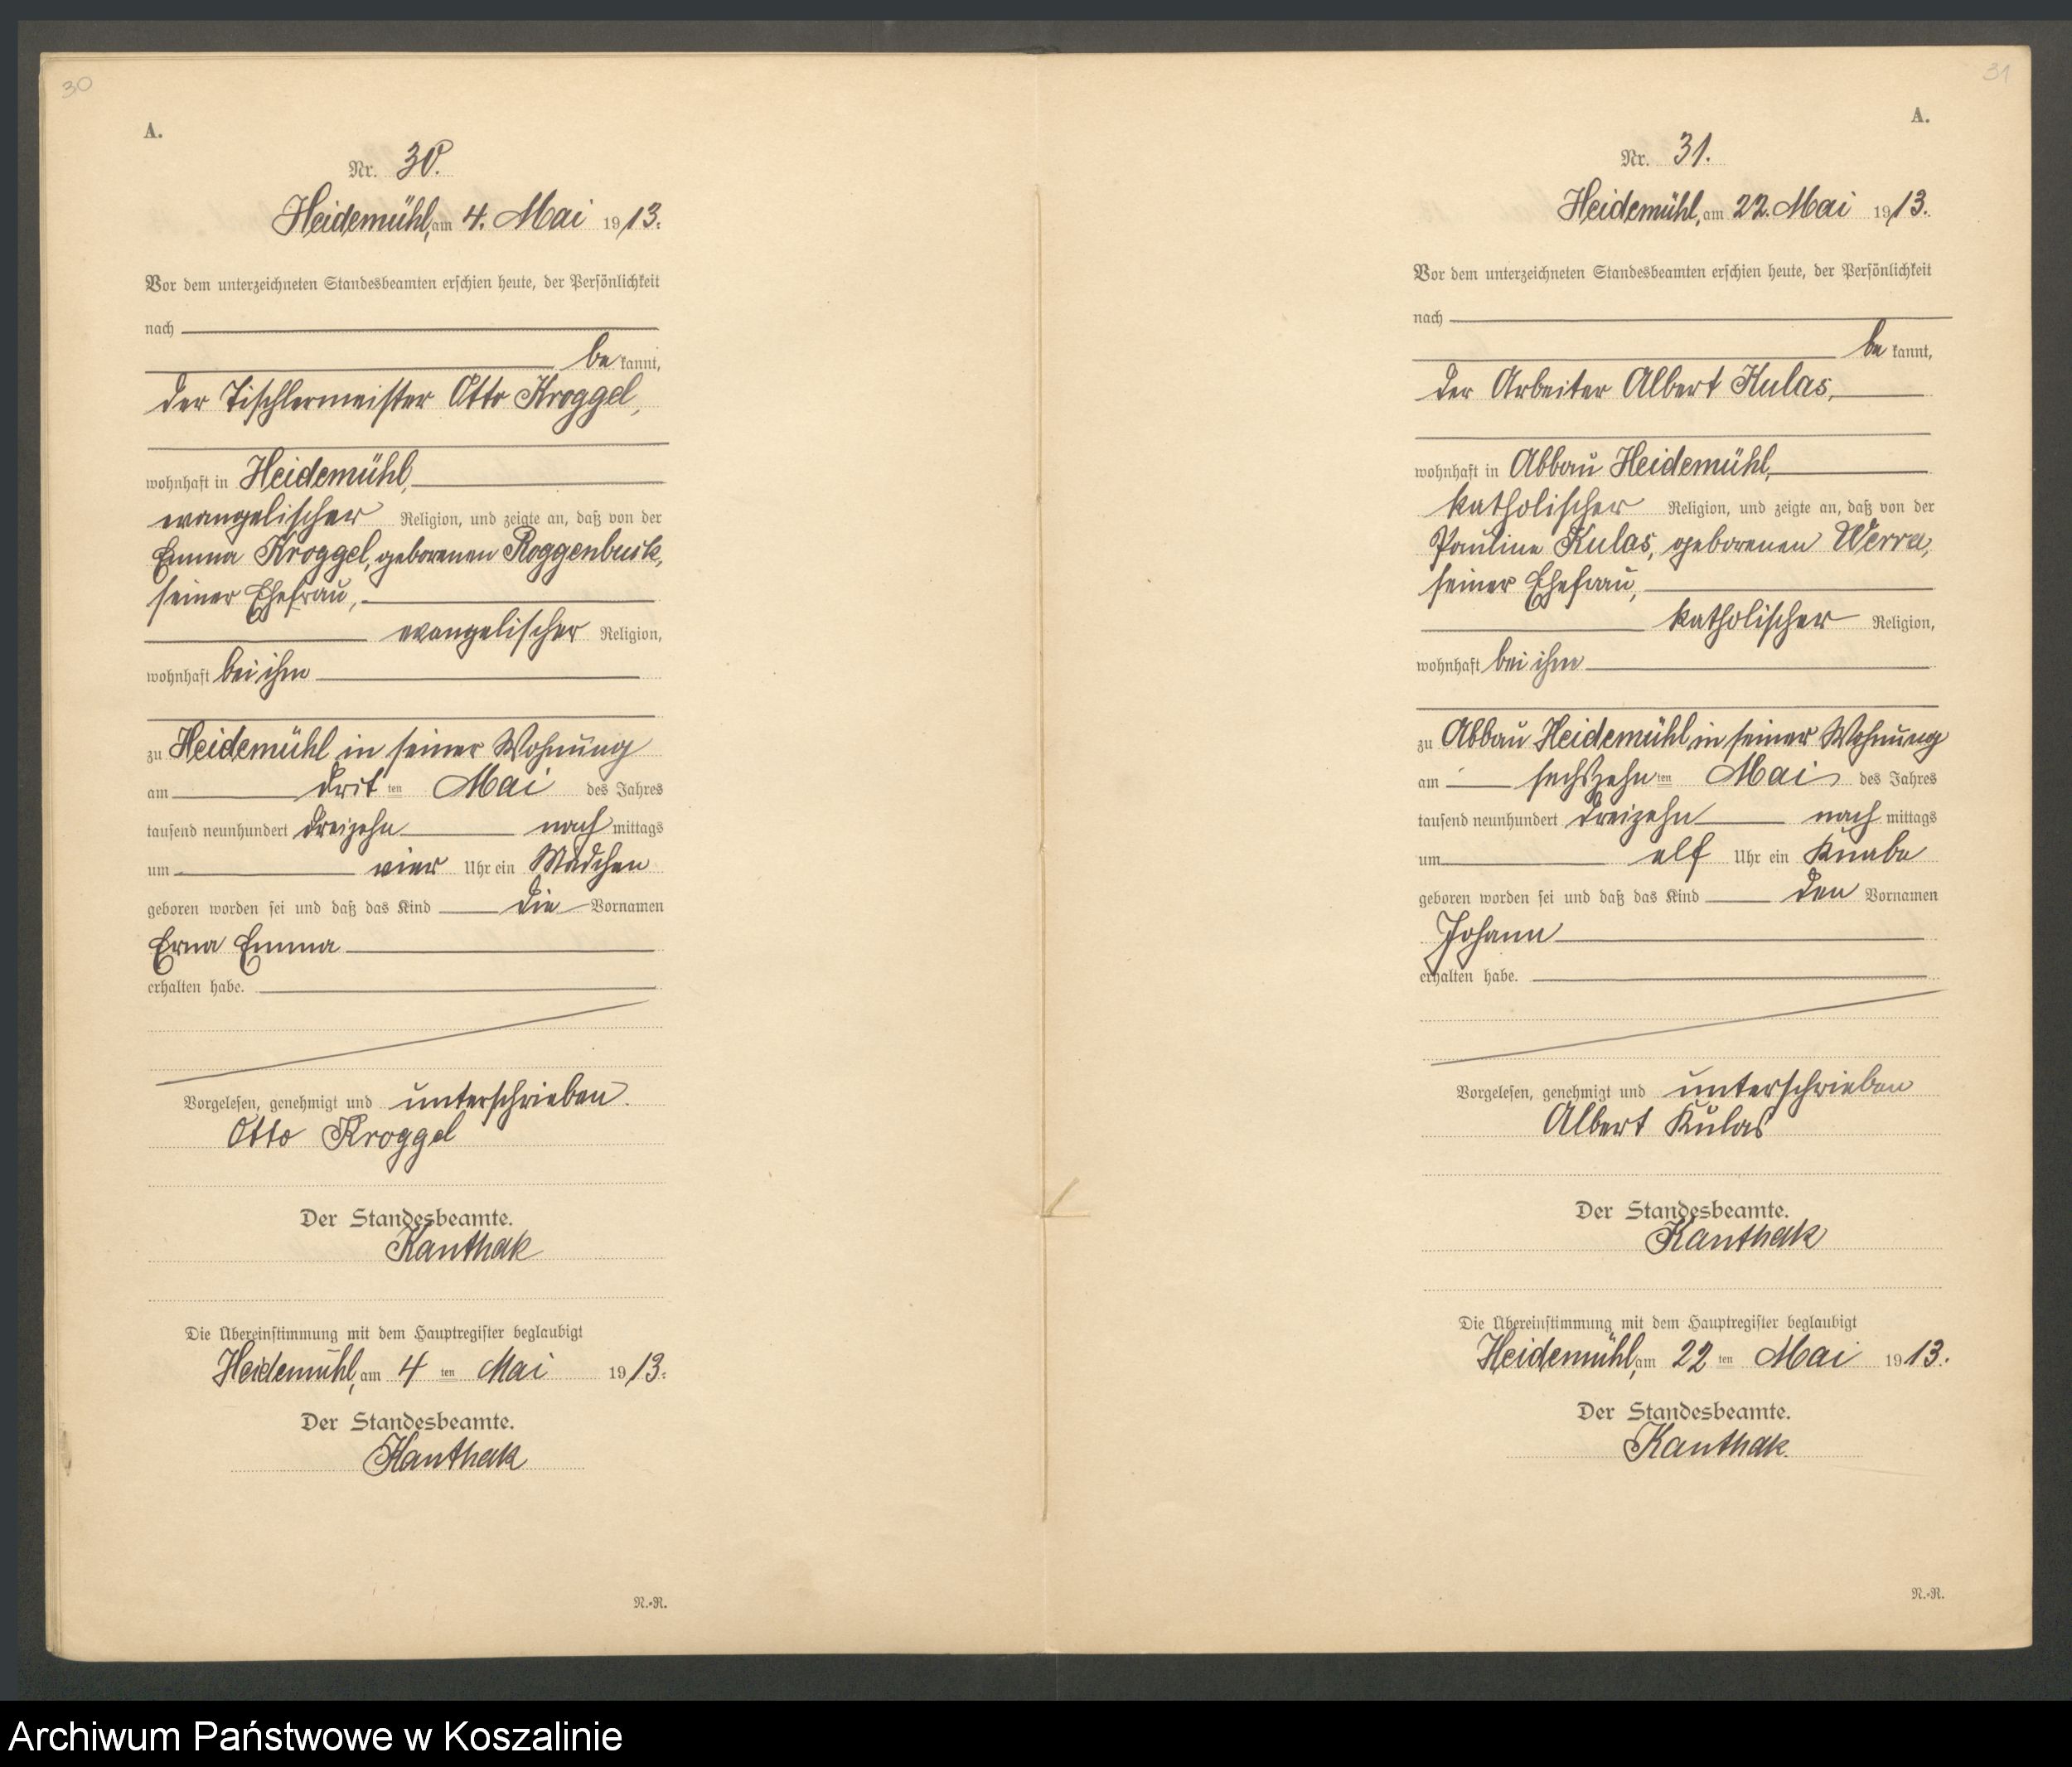 30
A.
Nr. 30.
Heidemühl, am 4. Mai 1913.
Vor dem unterzeichneten Standesbeamten erschien heute, der Persönlichkeit
nach
be kannt,
der Tischlermeister Otto Kroggel,
wohnhaft in Heidemühl,
evangelischer Religion, und zeigte an, daß von der
Emma Kroggel, geborenen Roggenbuck,
seiner Ehefrau,
evangelischer Religion,
wohnhaft bei ihm
zu Heidemühl in seiner Wohnung
am drit ten Mai des Jahres
tausend neunhundert dreizehn nach mittags
um vier Uhr ein Mädchen
geboren worden sei und daß das Kind die Vornamen
Erna Emma
erhalten habe.
Vorgelesen, genehmigt und unterschrieben.
Otto Kroggel
Der Standesbeamte.
Kanthak
Die Übereinstimmung mit dem Hauptregister beglaubigt
Heidemühl, am 4 ten Mai 1913.
Der Standesbeamte.
Kanthak
N.-R.
31
A.
Nr. 31.
Heidemühl, am 22. Mai 1913.
Vor dem unterzeichneten Standesbeamten erschien heute, der Persönlichkeit
nach
be kannt,
der Arbeiter Albert Kulas,
wohnhaft in Abbau Heidemühl,
katholischer Religion, und zeigte an, daß von der
Pauline Kulas, geborenen Werra,
seiner Ehefrau,
katholischer Religion,
wohnhaft bei ihm
zu Abbau Heidemühl in seiner Wohnung
am sechszehn ten Mai des Jahres
tausend neunhundert dreizehn nach mittags
um elf Uhr ein Knabe
geboren worden sei und daß das Kind den Vornamen
Johann
erhalten habe.
Vorgelesen, genehmigt und unterschrieben
Albert Kulas
Der Standesbeamte.
Kanthak
Die Übereinstimmung mit dem Hauptregister beglaubigt
Heidemühl, am 22 ten Mai 1913.
Der Standesbeamte.
Kanthak.
N.-R.
Archiwum Państwowe w Koszalinie